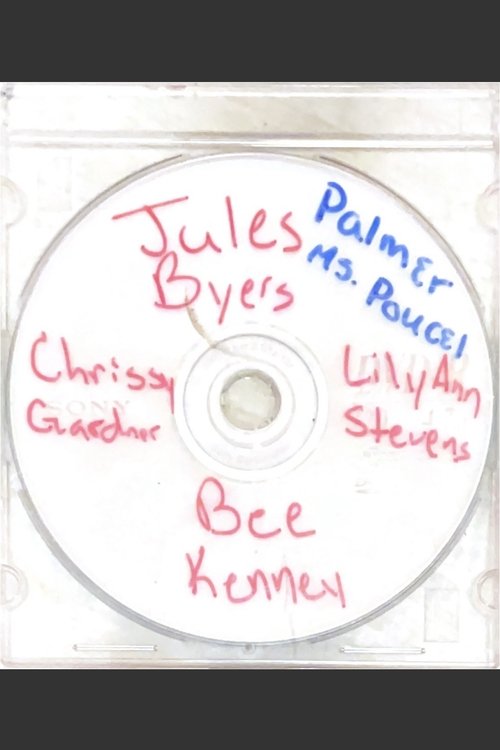 Jules
Byers
Palmer
Ms. Poucel
Chrissy
Gardner
LilyAnn
Stevens
Bee
Kenney
SONY